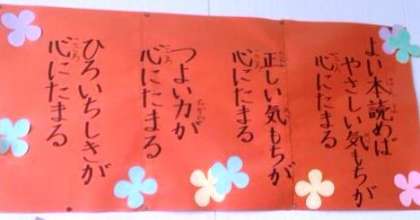 よい本読めば
やさしい気もちが
心にたまる
正しい気もちが
心にたまる
つよい力が
心にたまる
ひろいちしきが
心にたまる